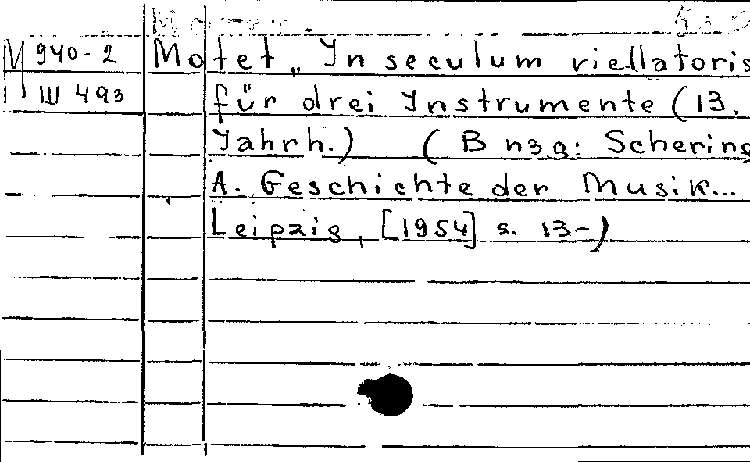 М 940-2 Motet „ In seculum viellatoris
Ш 493 für drei Instrumente (13.
Jahrh.) ( В изд: Schering
A. Geschichte der Musik...
Leipzig, [1954] s. 13-)